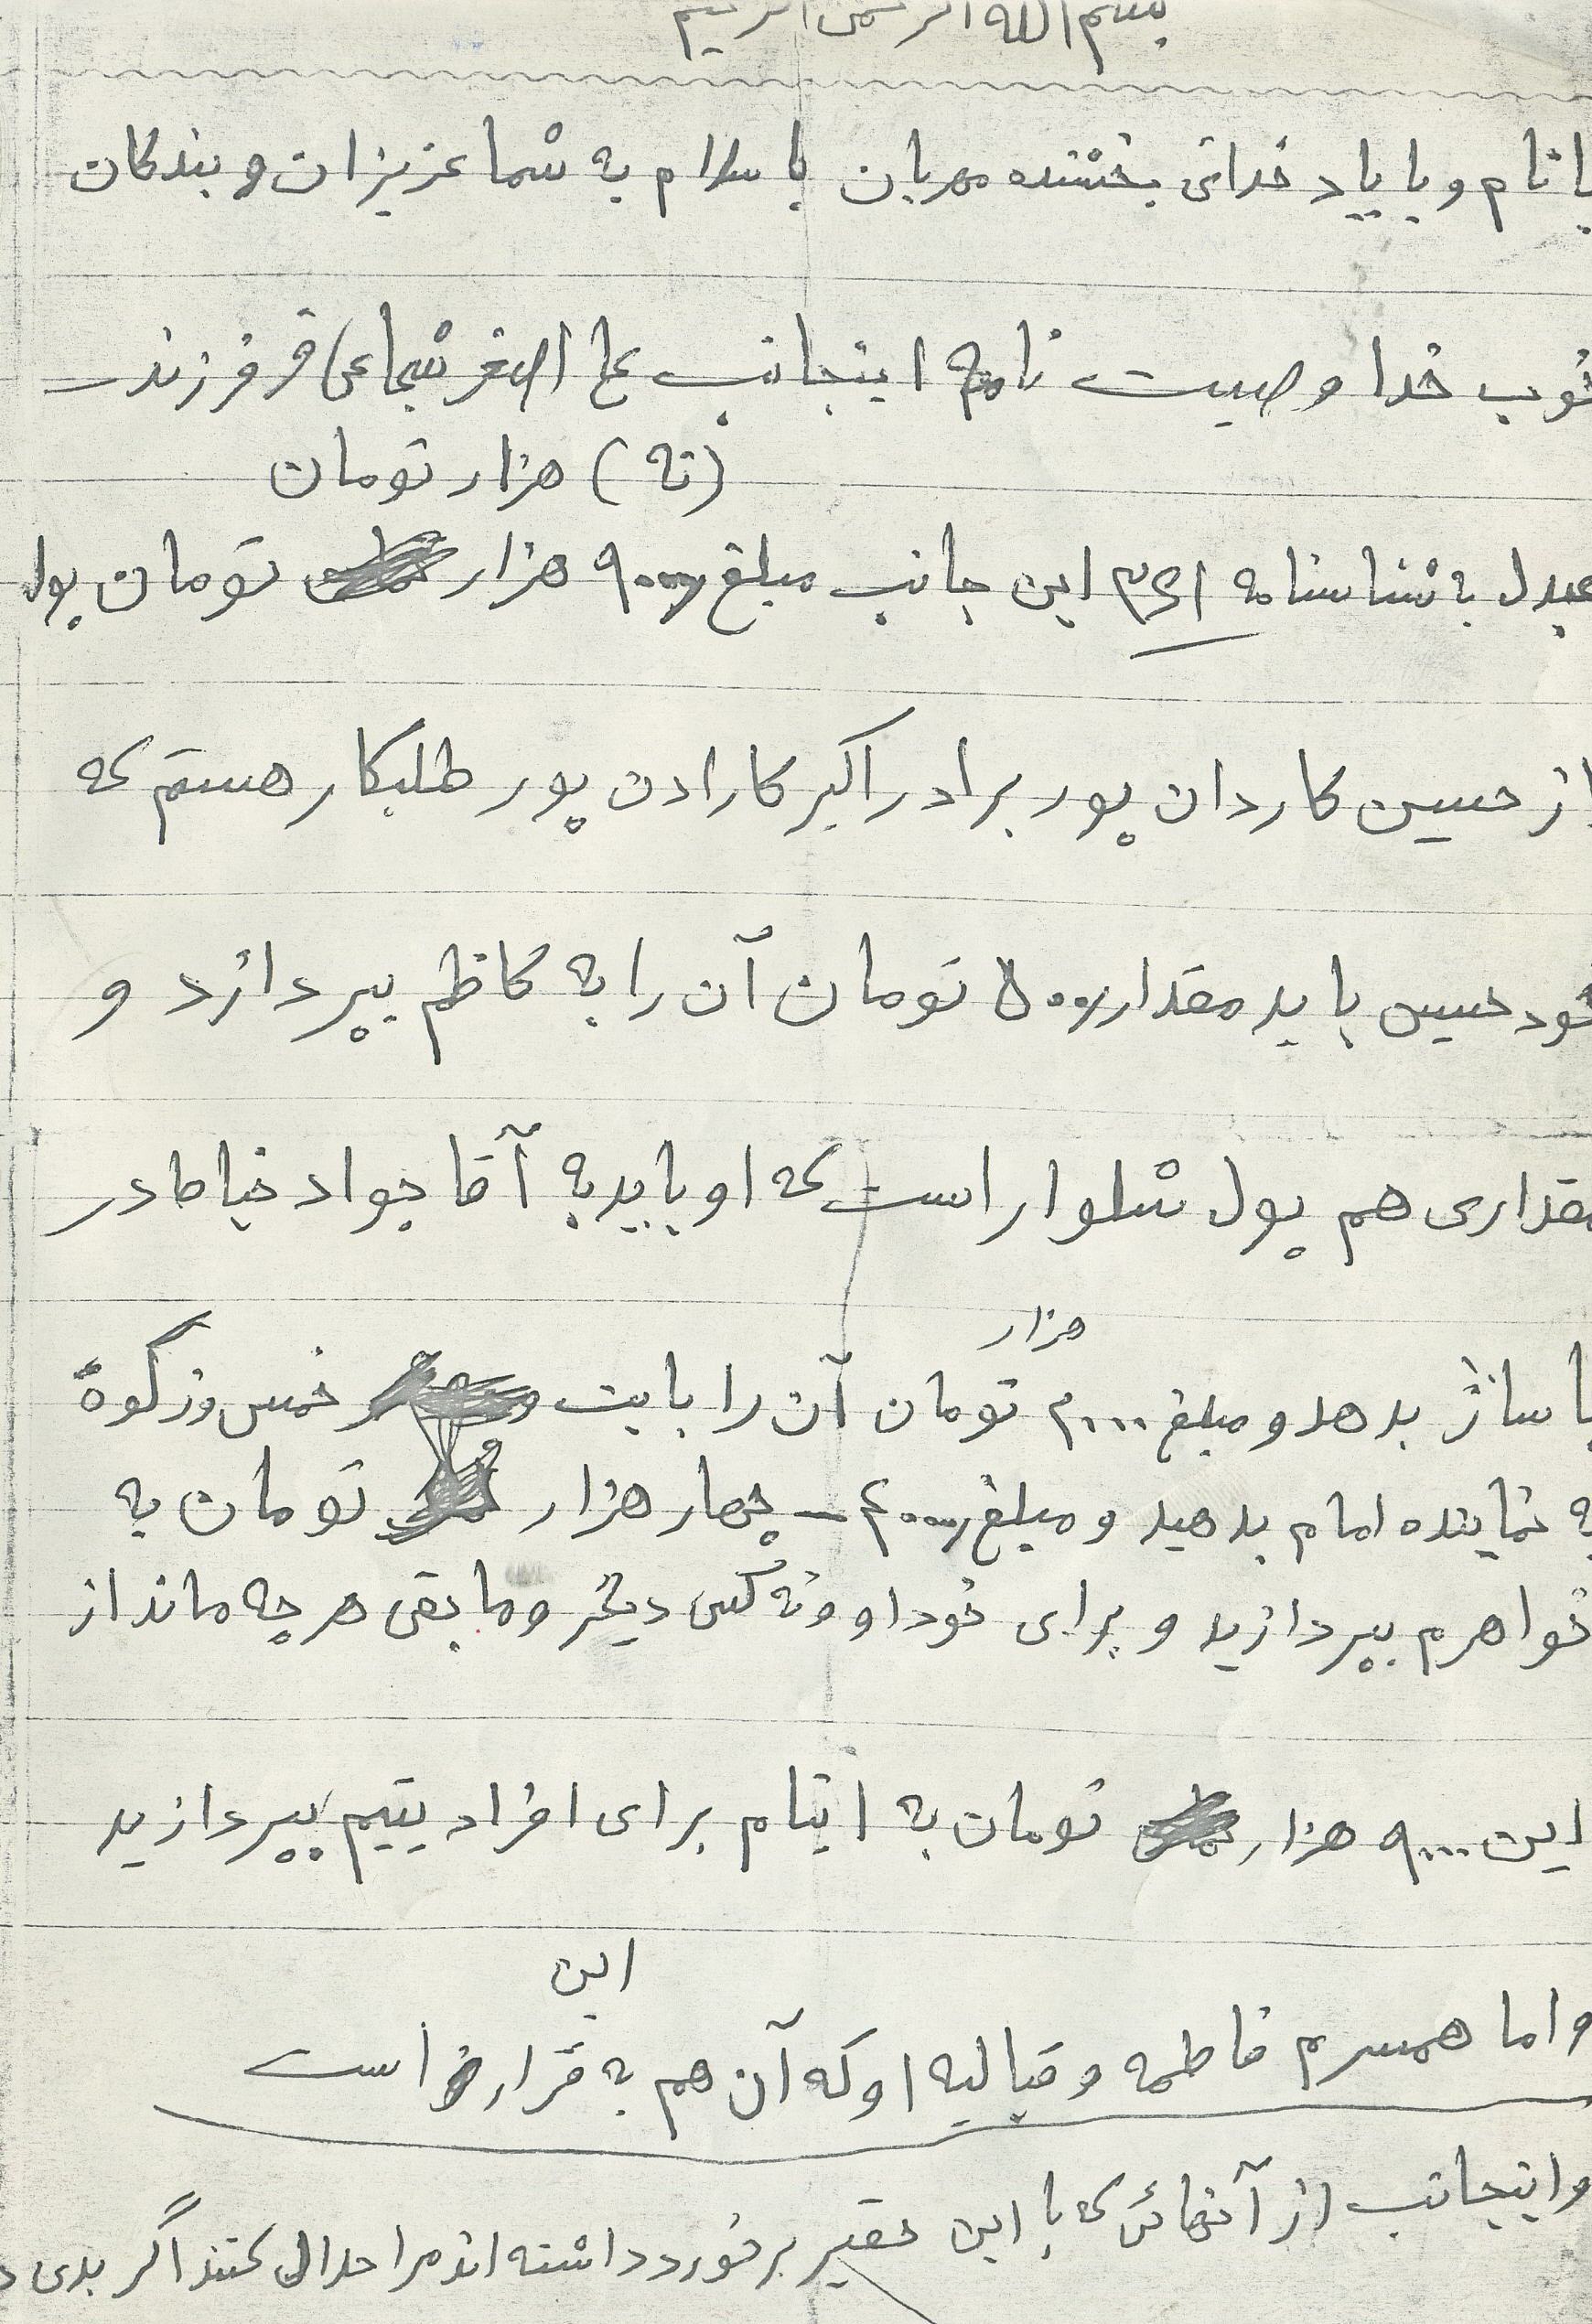 بسم الله الرحمن الرحیم
با نام و با یاد خدای بخشنده مهربان با سلام به شما عزیزان و بندگان
خوب خدا وصییت نامه اینجانب علی اصغر شجاعی فر فرزند
(نه) هزار تومان
عبدل با شناسنامه این جانب مبلغ ۹۰۰۰ هزار تومان پول
از حسین کاردان پور برادر اکبر کارادن پور طلبکار هستم که
خود حسین باید مقدار ۵۰۰ تومان آن را به کاظم بپردازد و
مقداری هم پول شلوار است که او باید به آقا جواد خیاط در
هزار
پاساژ بدهد و مبلغ ۲۰۰۰ تومان آن را بابت خمس و زکوة
به نماینده امام بدهید و مبلغ ۴۰۰۰ چهار هزار تومان به
خواهرم بپردازید و برای خود او و نه کس دیگر و مابقی هر چه ماند از
این ۹۰۰۰ هزار تومان به ایتام برای افراد یتیم بپردازید
این
و اما همسرم فاطمه و قبالیه او که آن هم به قرار است
و اینجانب از آنهائی که با این حقیر برخورد داشته اند مرا حلال کنند اگر بدی